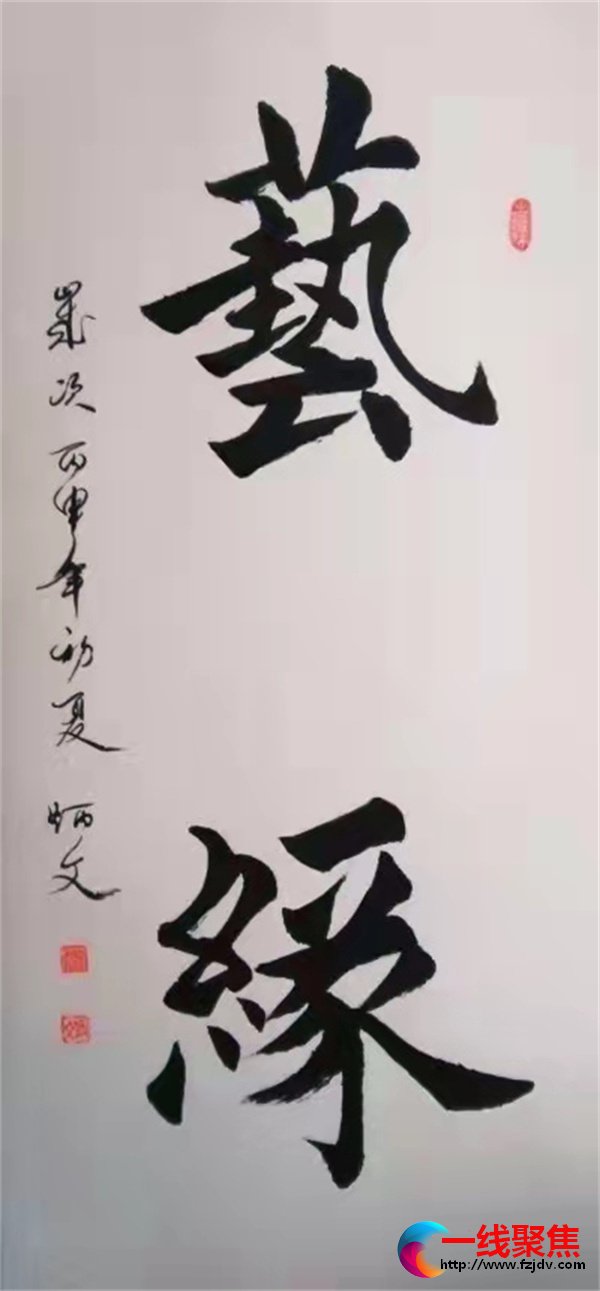 藝緣
歲次丙申年初夏 炳文
一线聚焦
http://www.fzjdv.com